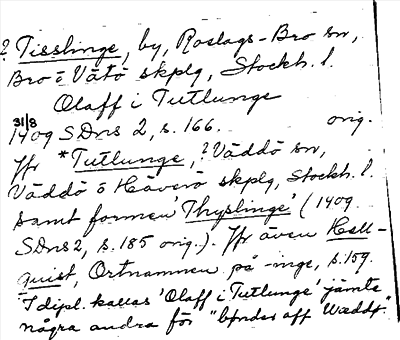 ? Tisslinge, by, Roslags-Bro sn,
Bro o Vätö skplg, Stockh. l.
Olaff i Tutlunge
31/8
1409 SDns 2, s. 166. orig.
Jfr *Tutlunge, ? Väddö sn,
Väddö o Häverö skplg, Stockh. l.
samt formen 'Thyslinge' (1409
SDns 2, s. 185 orig.). Jfr även Hell-
quist, Ortnamnen på -inge, s. 159.
I dipl. kallas 'Olaff i Tutlunge' jämte
några andra för "bönder aff Wæddø".